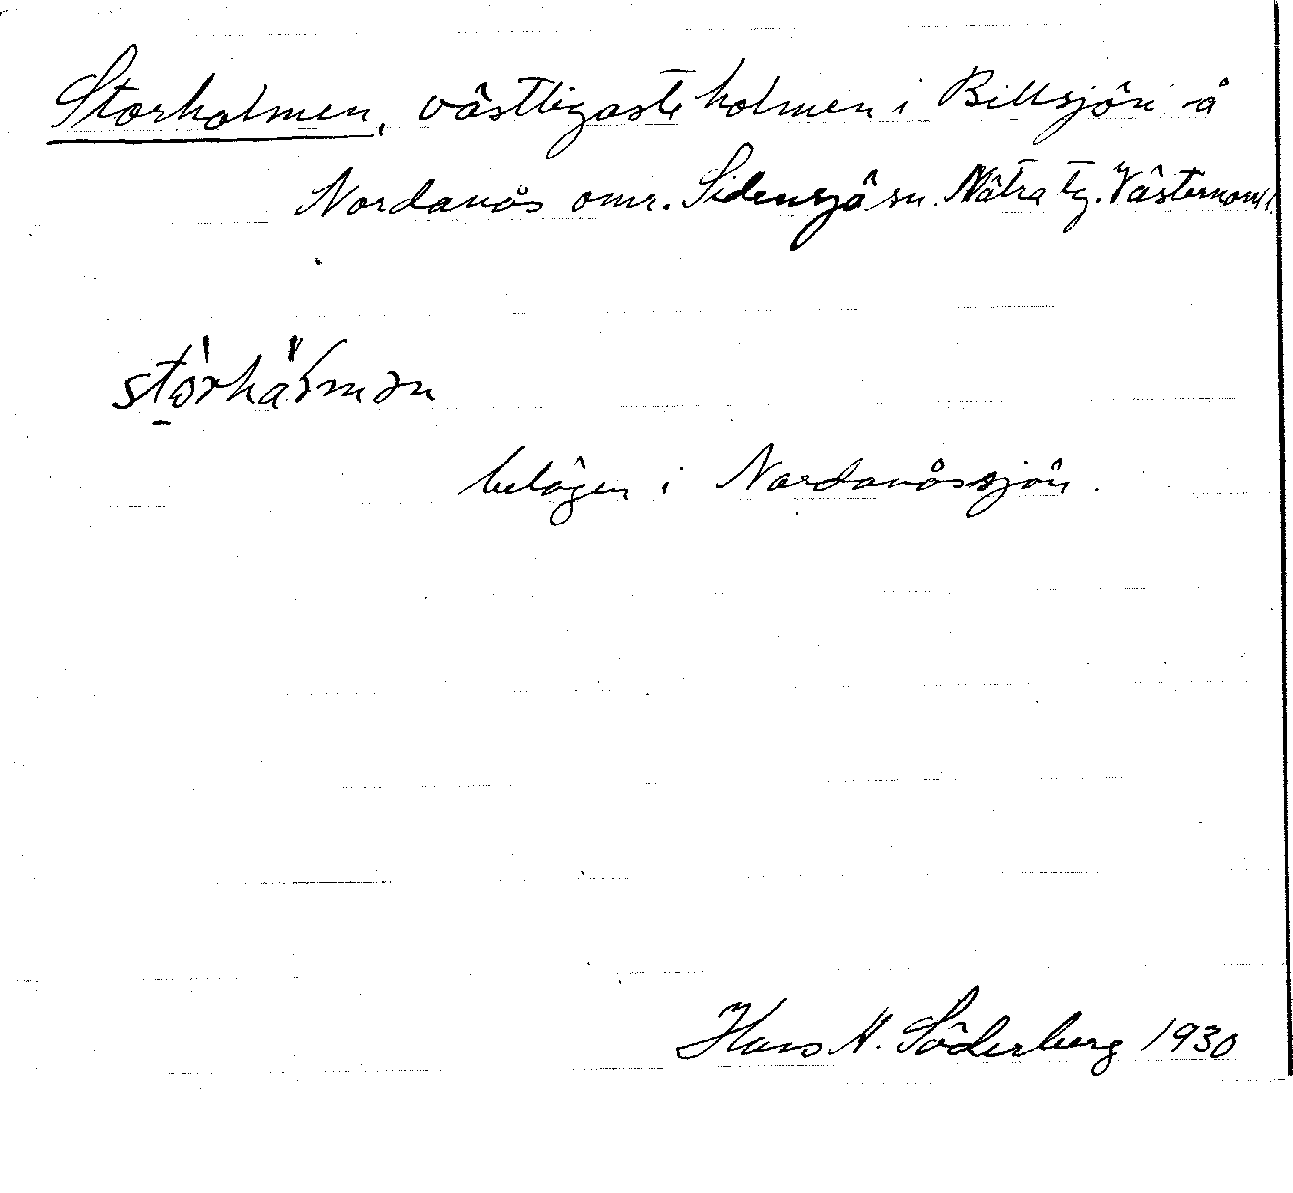 Storholmen, västligaste holmen i Billsjön å
Nordanås omr. Sidensjö sn. Nätra tg. Västernorrl.
belägen i Nordanåssjön.
Hans N. Söderberg 1930